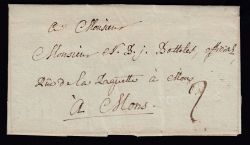 A Monsieur
Monsieur N. B. j. Bottelet, officier
Rüe de la à Mons
A Mons.
2